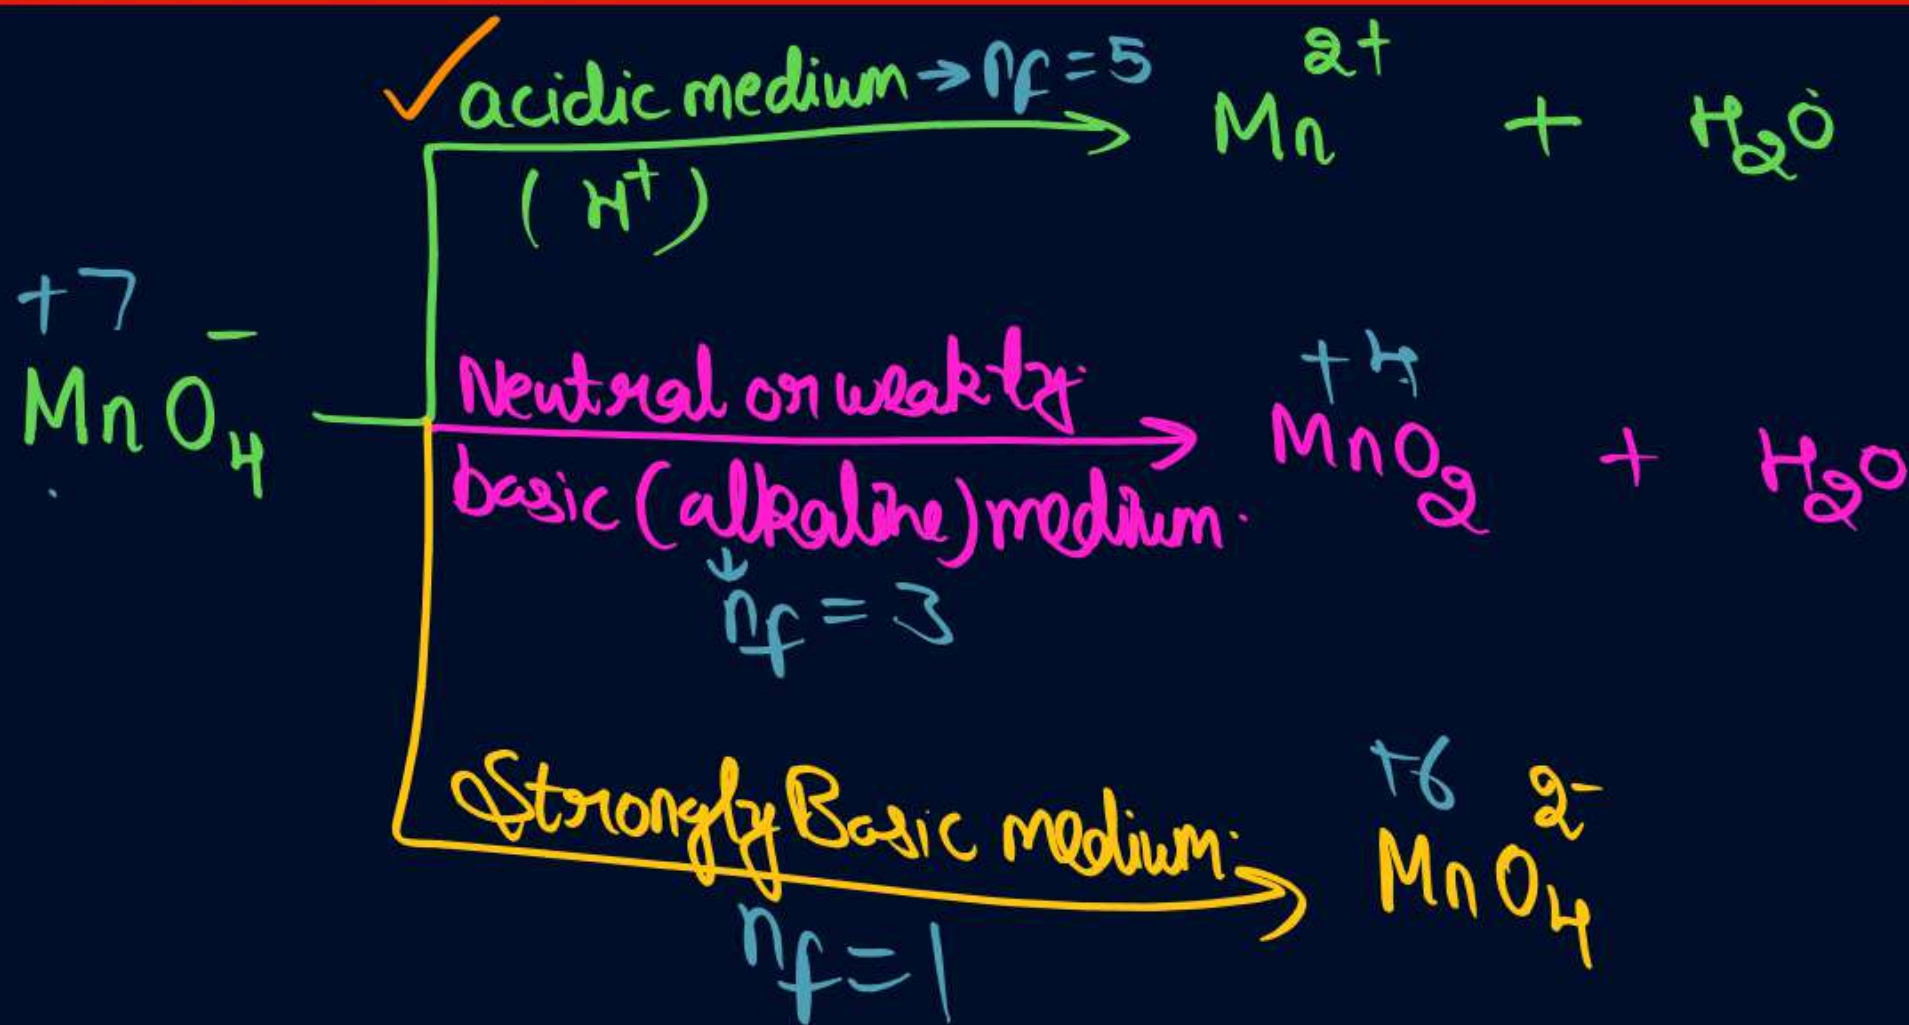 ✓ acidic medium → nf = 5
(H⁺)
Mn²⁺ + H₂O
+7
MnO₄⁻
Neutral or weakly
basic (alkaline) medium.
↓
nf = 3
+4
MnO₂ + H₂O
Strongly Basic medium.
nf = 1
+6
MnO₄²⁻